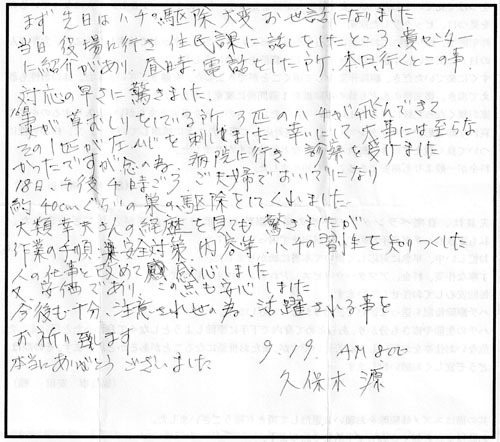 まず先日はハチ駆除大変お世話になりました
当日役場に行き住民課に話しをしたところ、貴センター
に紹介があり、昼時、電話をした所、本日行くとの事、
対応の早さに驚きました、
妻が草むしりをしている所、3匹のハチが飛んできて
その1匹が左ひじを刺しました、幸いにして大事には至らな
かったですが念の為、病院に行き、診察を受けました
18日、午後4時ごろ ご夫婦でおいでになり
約40cmぐらいの巣の駆除をしてくれました
大類幸夫さんの経歴を見ても驚きましたが
作業の手順、安全対策、内容等、ハチの習性を知りつくした
人の仕事と改めて感心しました
又、安価であり、この点も安心しました
今後も十分、注意され世の為 活躍される事を
お祈り致します
本当にありがとうございました
9.19. AM 8:00
久保木 源